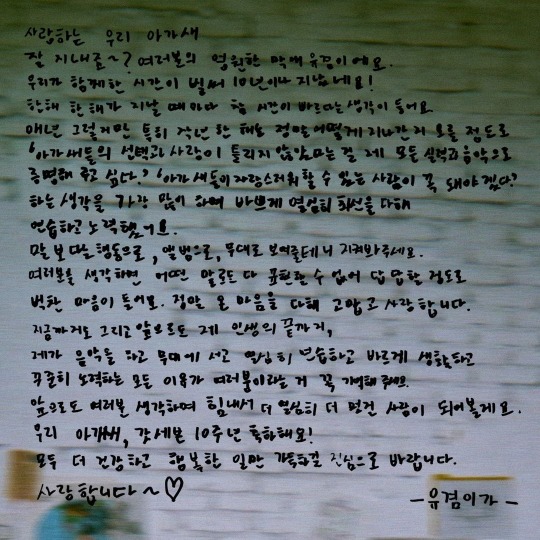 사랑하는 우리 아가새
잘 지내죠~? 여러분의 영원한 막내 유겸이에요.
우리가 함께한 시간이 벌써 10년이나 지났네요!
한해 한해가 지날 때마다 참 시간이 빠르다는 생각이 들어요
매년 그렇지만 특히 작년 한 해는 정말 어떻게 지나간지 모를 정도로
'아가새들의 선택과 사랑이 틀리지 않았다는 걸 제 모든 실력과 음악으로
증명해 주고 싶다.' '아가새들이 자랑스러워 할 수 있는 사람이 꼭 돼야겠다'
하는 생각을 가장 많이 하며 바쁘게 열심히 최선을 다해
연습하고 노력했어요.
말보다는 행동으로, 앨범으로, 무대로 보여줄테니 지켜봐주세요.
여러분을 생각하면 어떤 말로도 다 표현할 수 없어 답답할 정도로
벅찬 마음이 들어요. 정말 온 마음을 다해 고맙고 사랑합니다.
지금까지도 그리고 앞으로도 제 인생의 끝까지,
제가 음악을 하고 무대에 서고 열심히 연습하고 바르게 생활하고
꾸준히 노력하는 모든 이유가 여러분이라는 거 꼭 기억해 주세요.
앞으로도 여러분 생각하며 힘내서 더 열심히 더 멋진 사람이 되어볼게요.
우리 아가새, 갓세븐 10주년 축하해요!
모두 더 건강하고 행복한 일만 가득하길 진심으로 바랍니다.
사랑합니다~♡
-유겸이가-